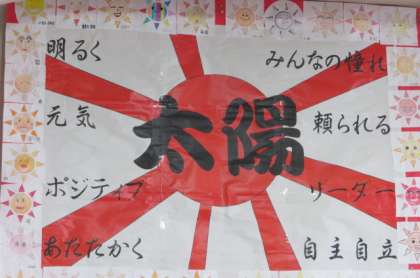 明るく
みんなの憧れ
元気
頼られる
太陽
ポジティブ
リーダー
あたたかく
自主自立